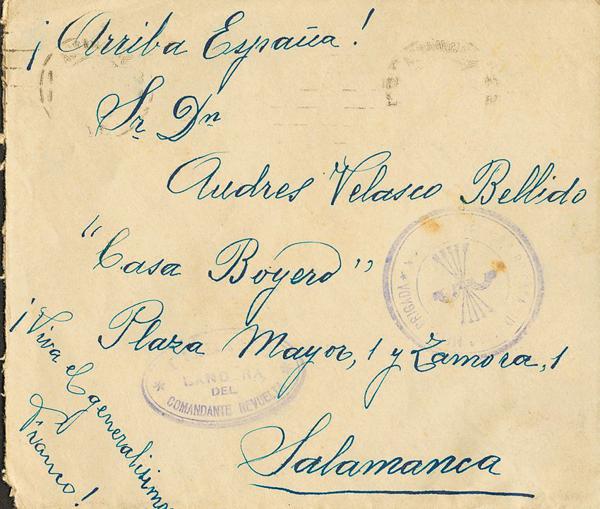 ¡Arriba España!
Sr. Dn
Andres Velasco Bellido
"Casa Boyero"
Plaza Mayor, 1 y Zamora, 1
Salamanca
¡Viva el generalísimo
Franco!
BRIGADA
BANDERA
DEL
COMANDANTE REVUELTA